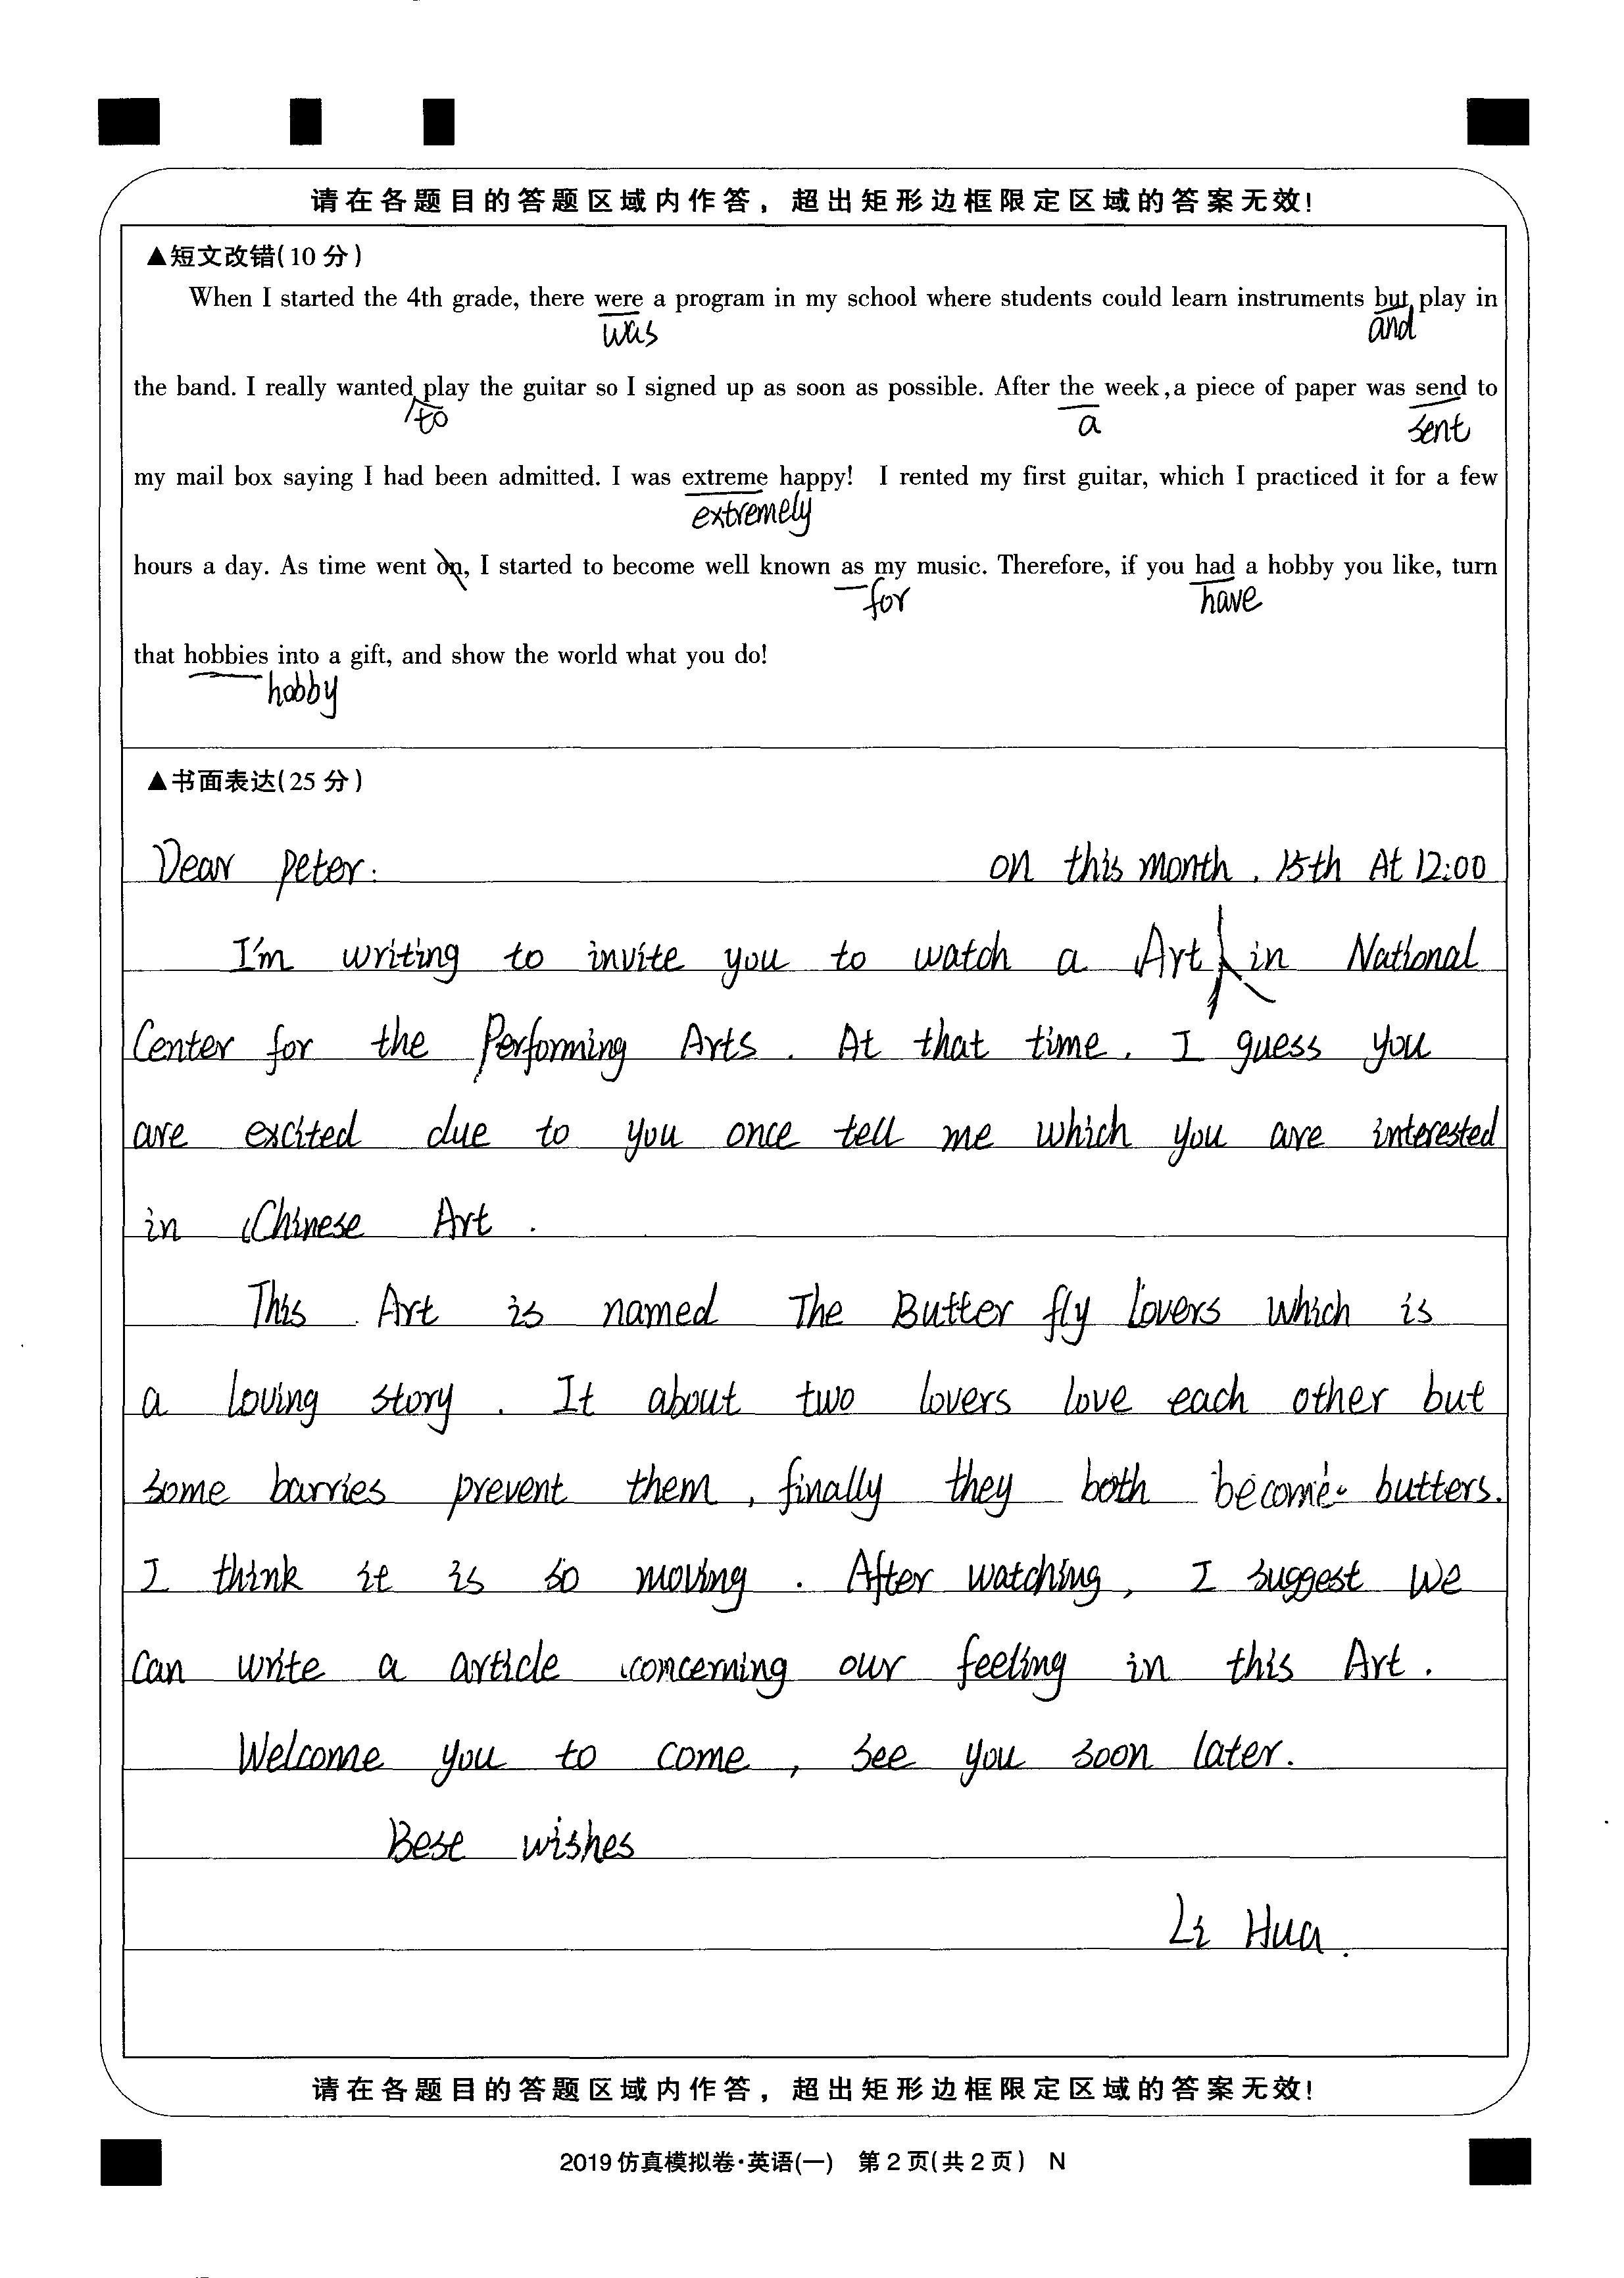 请在各题目的答题区域内作答，超出矩形边框限定区域的答案无效!
▲短文改错(10分)
When I started the 4th grade, there were a program in my school where students could learn instruments but play in
was and
the band. I really wanted play the guitar so I signed up as soon as possible. After the week,a piece of paper was send to
to a sent
my mail box saying I had been admitted. I was extreme happy! I rented my first guitar, which I practiced it for a few
extremely
hours a day. As time went on, I started to become well known as my music. Therefore, if you had a hobby you like, turn
for have
that hobbies into a gift, and show the world what you do!
hobby
▲书面表达(25分)
Dear peter: on this month, 15th At 12:00
I'm writing to invite you to watch a Art in National
Center for the Performing Arts. At that time, I guess you
are excited due to you once tell me which you are interested
in Chinese Art.
This Art is named The Butter fly lovers which is
a loving story. It about two lovers love each other but
some barries prevent them, finally they both become butters.
I think it is so moving. After watching, I suggest we
can write a article concerning our feeling in this Art.
Welcome you to come, see you soon later.
Best wishes
Li Hua.
请在各题目的答题区域内作答，超出矩形边框限定区域的答案无效!
2019仿真模拟卷·英语(一) 第2页(共2页) N